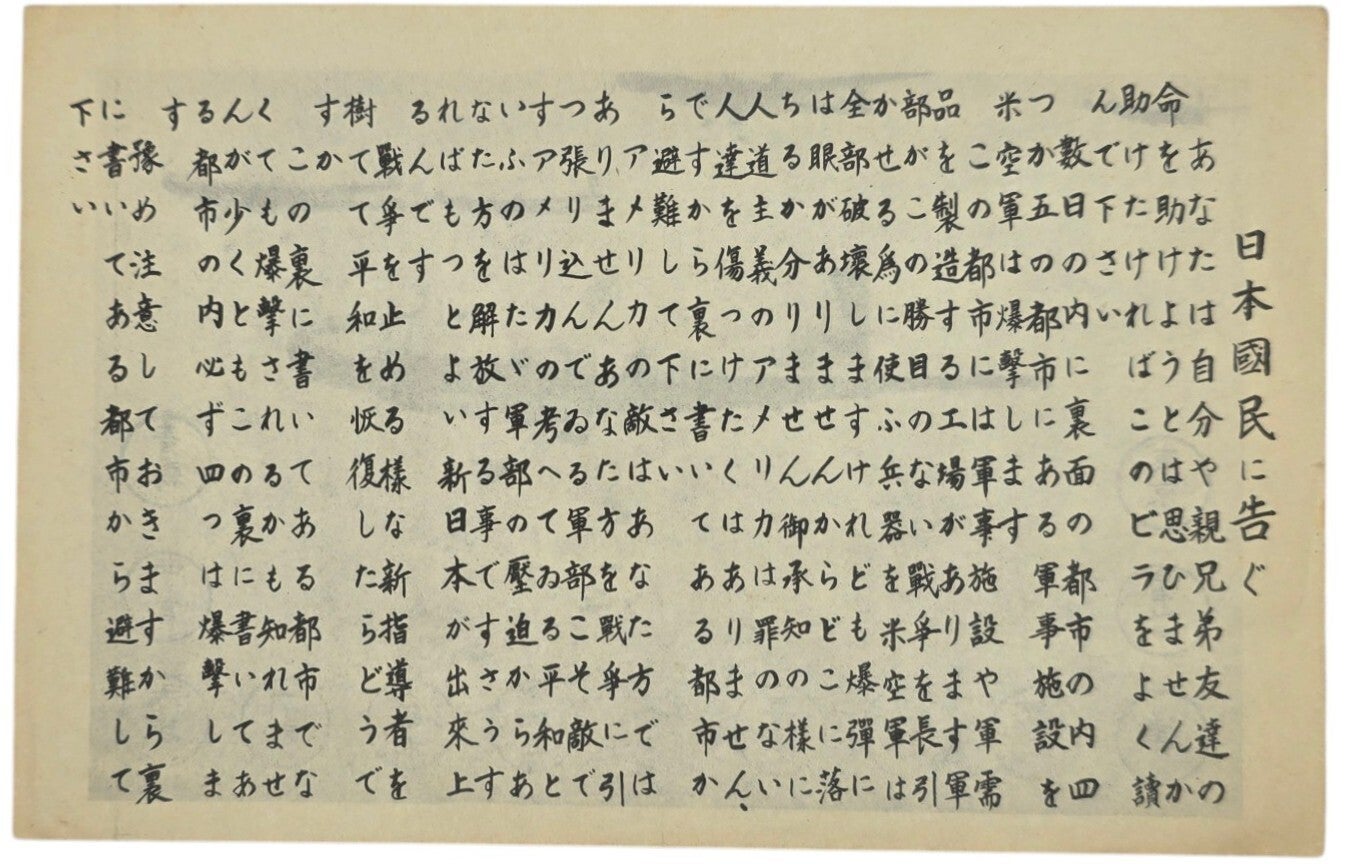 日本國民に告ぐ
あなたは自分や親兄弟友達の
命を助けようとは思ひませんか
助けたければこのビラをよく讀
んで下さい
數日の内に裏面の都市の内四
つか五の都市にある軍事施設を
米空軍は爆撃します
この都市には軍事施設や軍需
品を製造する工場があります軍
部がこの勝目のない戰爭を長引
かせる爲に使ふ兵器を米空軍は
全部破壊しますけれども爆彈に
は眼がありませんからどこに落
ちるか分りません御承知の様に
人道主義のアメリカは罪のない
人達を傷つけたくはありません、
ですから裏に書いてある都市か
ら避難して下さい
アメリカの敵はあなた方では
ありませんあなた方を戰爭に引
つ張り込んでゐる軍部こそ敵で
すアメリカの考へてゐる平和と
いふのはたゞ軍部の壓迫からあ
なた方を解放する事ですさうす
ればもつとよい新日本が出來上
るんです
戰爭を止める様な新指導者を
樹てて平和を恢復したらどうで
すか
この裏に書いてある都市でな
くても爆撃されるかも知れませ
んが少くともこの裏に書いてあ
る都市の内必ず四つは爆撃しま
す
豫め注意しておきますから裏
に書いてある都市から避難して
下さい